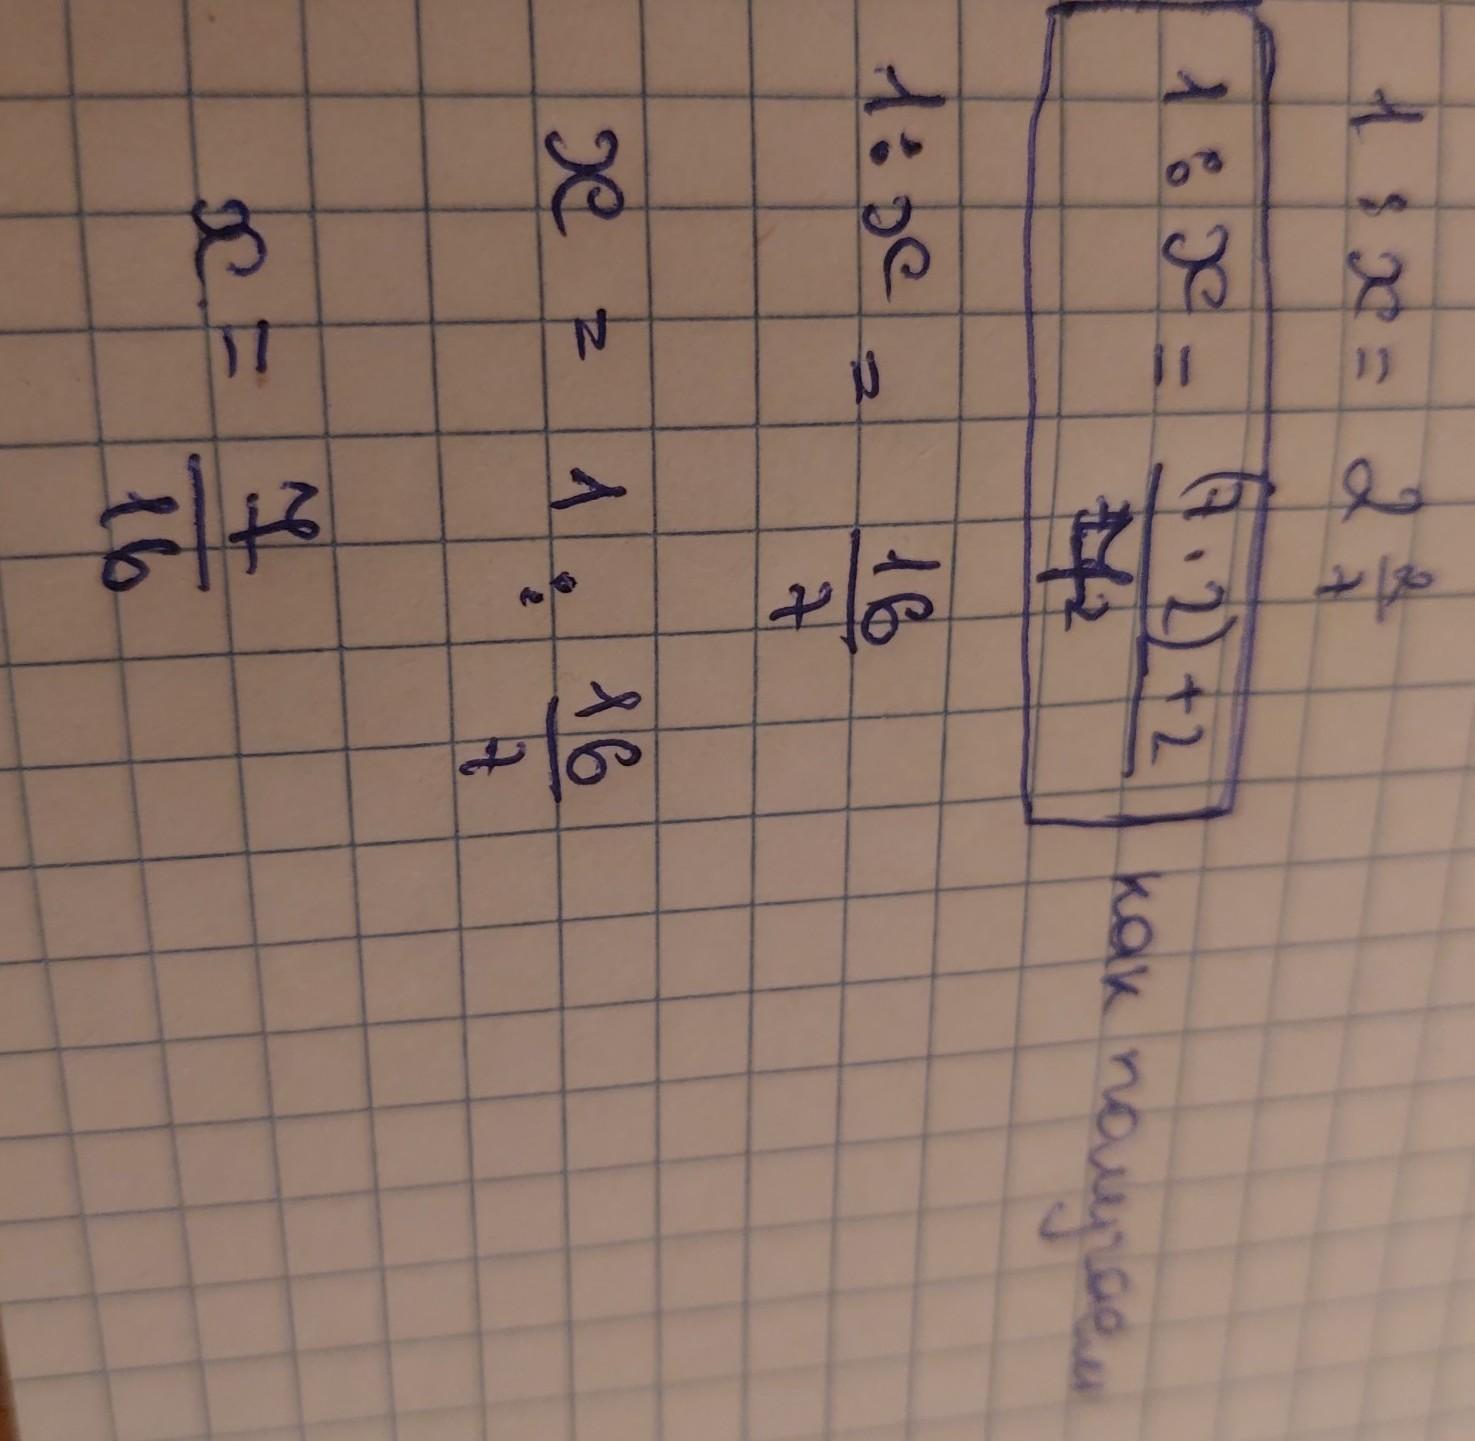 1 : x = 2 2/7
1 : x = (7 · 2) + 2 / 2 как получаем
1 : x = 16/7
x = 1 : 16/7
x = 7/16